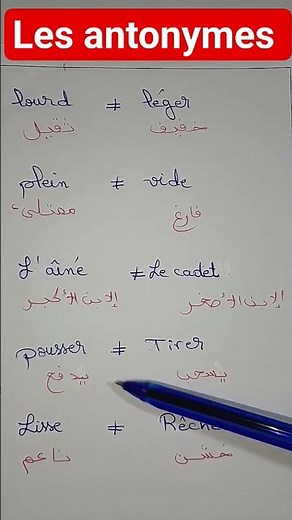 Les antonymes
lourd ≠ léger
ثقيل خفيف
plein ≠ vide
ممتلئ فارغ
L'aîné ≠ Le cadet
الابن الأكبر الابن الأصغر
pousser ≠ Tirer
يدفع يسحب
Lisse ≠ Rêche
ناعم خشن